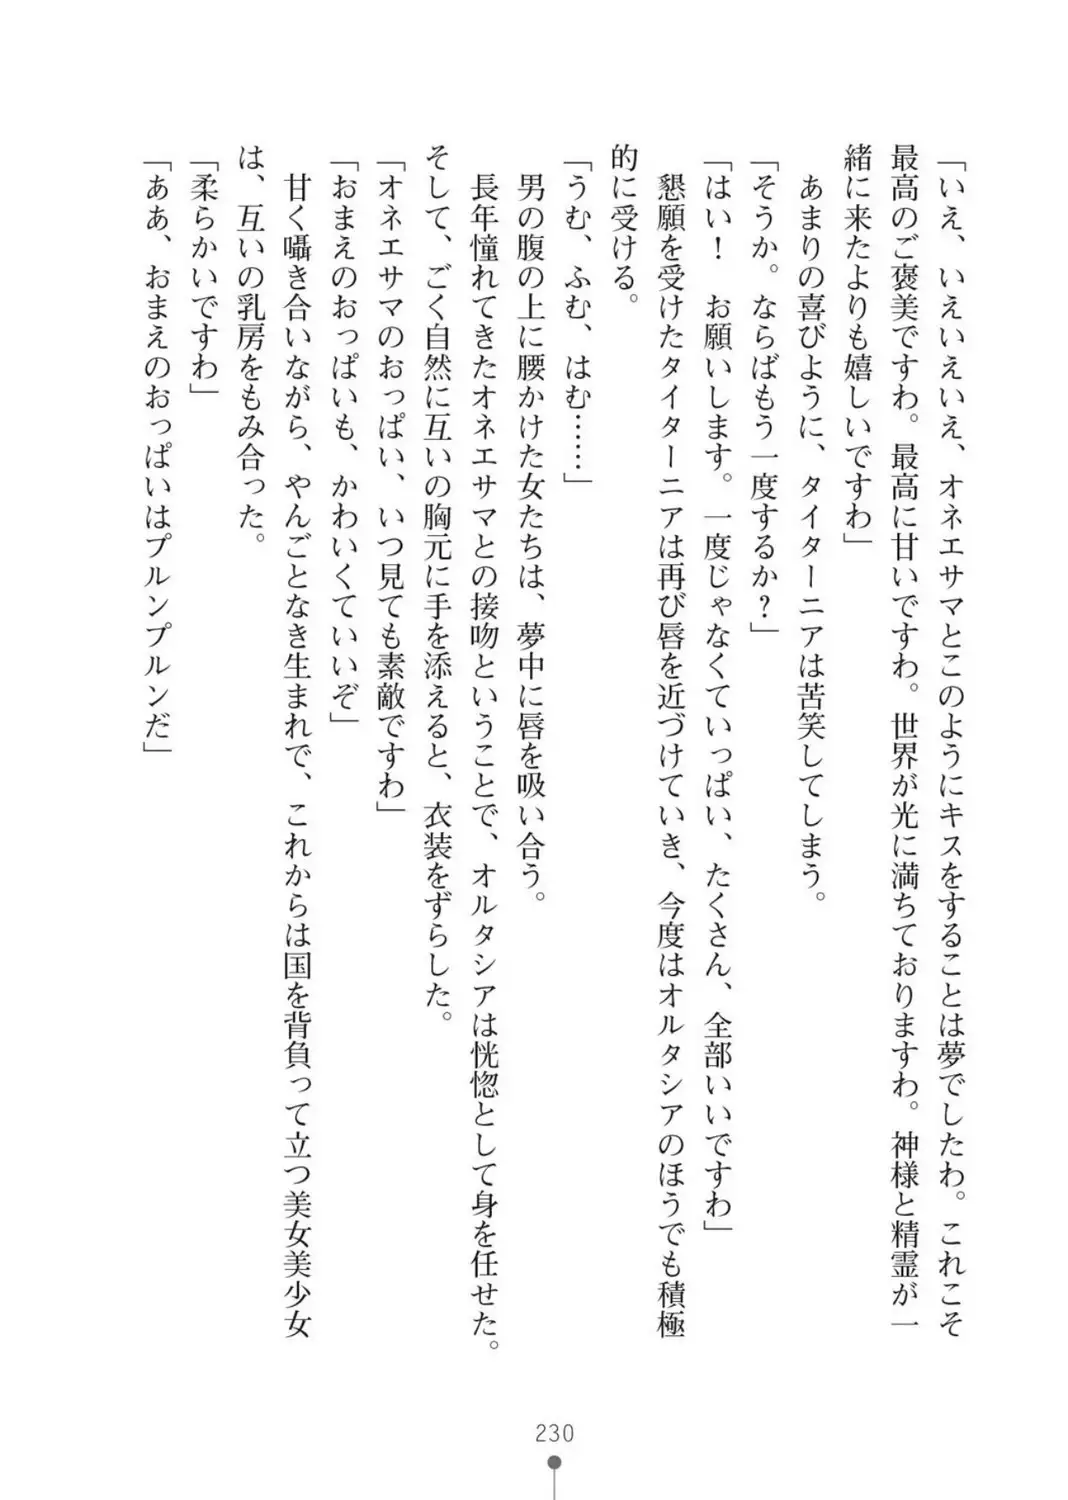 「いえ、いえいえいえ、オネエサマとこのようにキスをすることは夢でしたわ。これこそ
最高のご褒美ですわ。最高に甘いですわ。世界が光に満ちておりますわ。神様と精霊が一
緒に来たよりも嬉しいですわ」
あまりの喜びように、タイターニアは苦笑してしまう。
「そうか。ならばもう一度するか？」
「はい！　お願いします。一度じゃなくていっぱい、たくさん、全部いいですわ」
懇願を受けたタイターニアは再び唇を近づけていき、今度はオルタシアのほうでも積極
的に受ける。
「うむ、ふむ、はむ……」
男の腹の上に腰かけた女たちは、夢中に唇を吸い合う。
長年憧れてきたオネエサマとの接吻ということで、オルタシアは恍惚として身を任せた。
そして、ごく自然に互いの胸元に手を添えると、衣装をずらした。
「オネエサマのおっぱい、いつ見ても素敵ですわ」
「おまえのおっぱいも、かわいくていいぞ」
甘く囁き合いながら、やんごとなき生まれで、これからは国を背負って立つ美女美少女
は、互いの乳房をもみ合った。
「柔らかいですわ」
「ああ、おまえのおっぱいはプルンプルンだ」
230